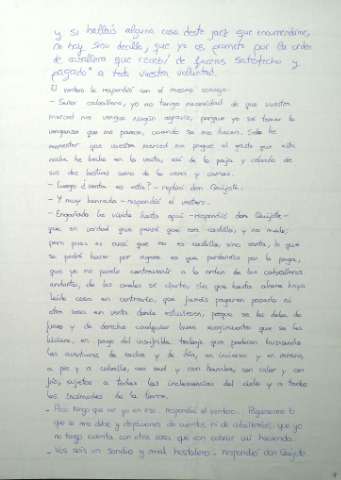 y si halláis alguna cosa deste jaez que encomendarme,
no hay sino decilla, que yo os prometo por la orden
de caballero que recebí de faceros satisfecho y
pagado a toda vuestra voluntad.
El ventero le respondió con el mesmo sosiego:
- Señor caballero, yo no tengo necesidad de que vuestra
merced me vengue ningún agravio, porque yo sé tomar la
venganza que me parece, cuando se me hacen. Sólo he
menester que vuestra merced me pague el gasto que esta
noche ha hecho en la venta, así de la paja y cebada de
sus dos bestias como de la cena y camas.
- ¿Luego venta es esta? - replicó don Quijote.
- Y muy honrada - respondió el ventero.
- Engañado he vivido hasta aquí - respondió don Quijote -
que en verdad que pensé que era castillo, y no malo;
pero pues es ansí que no es castillo, sino venta, lo que
se podrá hacer por agora es que perdonéis por la paga,
que yo no puedo contravenir a la orden de los caballeros
andantes, de los cuales sé cierto, sin que hasta ahora haya
leído cosa en contrario, que jamás pagaron posada ni
otra cosa en venta donde estuviesen, porque se les debe de
fuero y de derecho cualquier buen acogimiento que se les
hiciere, en pago del insufrible trabajo que padecen buscando
las aventuras de noche y de día, en invierno y en verano,
a pie y a caballo, con sed y con hambre, con calor y con
frío, sujetos a todas las inclemencias del cielo y a todos
los incómodos de la tierra.
- Poco tengo que ver yo en eso - respondió el ventero -. Págueseme lo
que se me debe y dejémonos de cuentos ni de caballerías, que yo
no tengo cuenta con otra cosa que con cobrar mi hacienda.
- Vos sois un sandio y mal hostalero - respondió don Quijote.